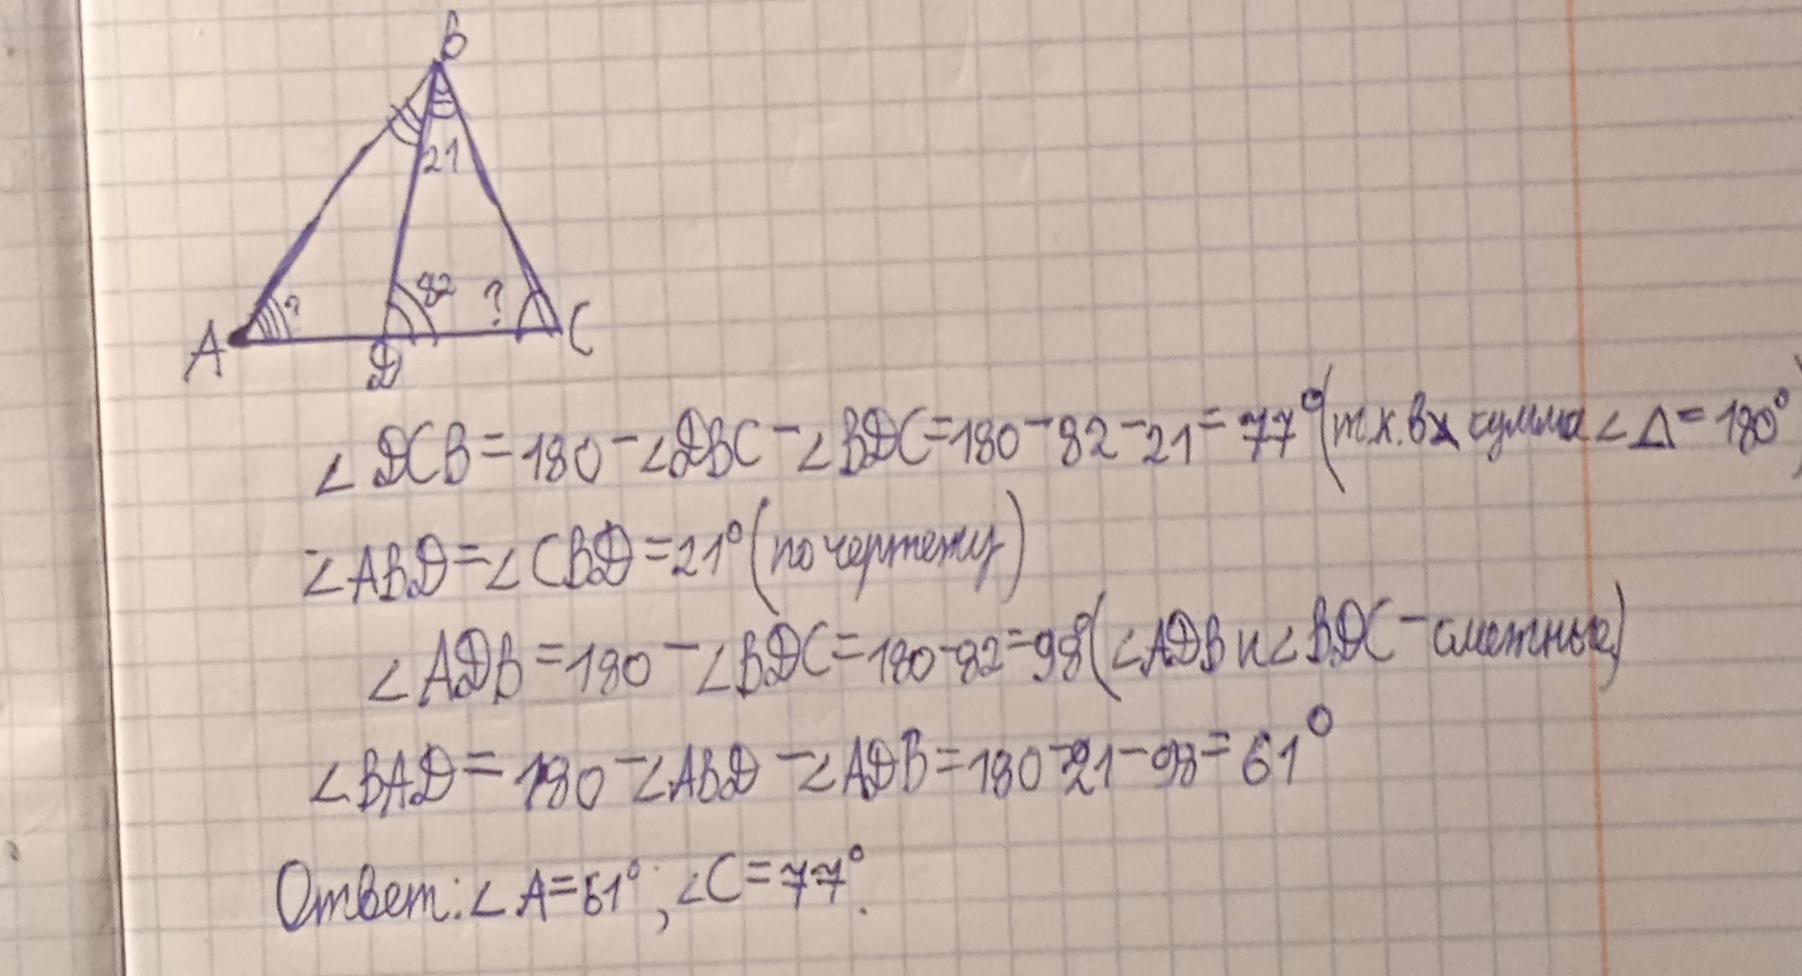 B
21
?
82
?
A
D
C
∠DCB=180-∠DBC-∠BDC=180-82-21=77°(т.к. сумма ∠ Δ=180°)
∠ABD=∠CBD=21°(по чертежу)
∠ADB=180-∠BDC=180-82=98°(∠ADB и ∠BDC-смежные)
∠BAD=180-∠ABD-∠ADB=180-21-98=61°
Ответ:∠A=61°;∠C=77°.